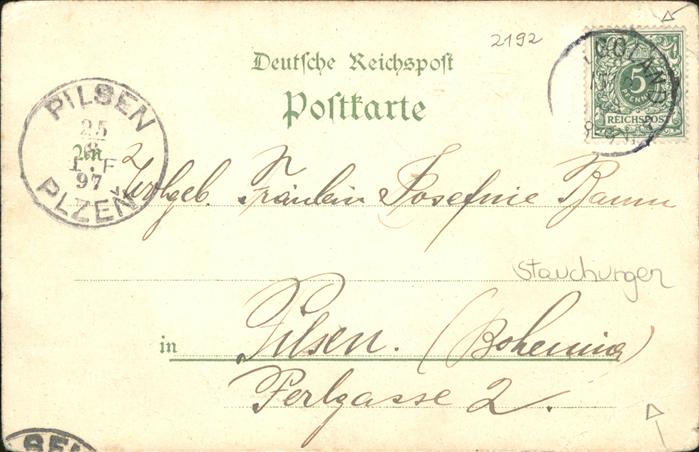 2192
Deutsche Reichspost
Postkarte
5
PFENNIG
REICHSPOST
GOLAND
PILSEN
25
8
1.F
97
PLZEŇ
An
Wohlgeb. Fräulein Josefine Baum
Stauchungen
in Pilsen. (Bohemia)
Perlgasse 2.
SEN